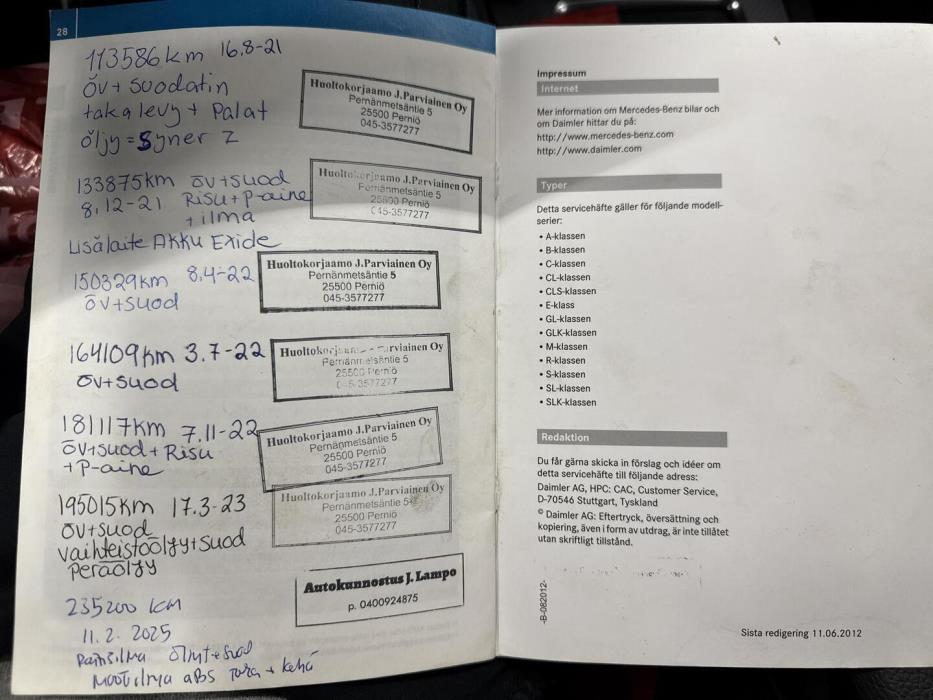 28
113586 km 16.8-21
öv + suodatin
takalevy + Palat
öljy = Syner Z
Huoltokorjaamo J.Parviainen Oy
Pernänmetsäntie 5
25500 Perniö
045-3577277
133875km öv+suod
8.12-21 Risu+P-aine
+ilma
Lisälaite Akku Exide
Huoltokorjaamo J.Parviainen Oy
Pernänmetsäntie 5
25500 Perniö
045-3577277
150329km 8.4-22
öv+suod
Huoltokorjaamo J.Parviainen Oy
Pernänmetsäntie 5
25500 Perniö
045-3577277
164109km 3.7-22
öv+suod
Huoltokorjaamo J.Parviainen Oy
Pernänmetsäntie 5
25500 Perniö
045-3577277
181117km 7.11-22
öv+suod + Risu
+P-aine
Huoltokorjaamo J.Parviainen Oy
Pernänmetsäntie 5
25500 Perniö
045-3577277
195015km 17.3-23
öv+suod
vaihteistoöljy+suod
Peräöljy
Huoltokorjaamo J.Parviainen Oy
Pernänmetsäntie 5
25500 Perniö
045-3577277
235200 km
11.2.2025
öljyt+suod
ABS + kehä
Autokunnostus J. Lampo
p. 0400924875
Impressum
Internet
Mer information om Mercedes-Benz bilar och
om Daimler hittar du på:
http://www.mercedes-benz.com
http://www.daimler.com
Typer
Detta servicehäfte gäller för följande modell-
serier:
• A-klassen
• B-klassen
• C-klassen
• CL-klassen
• CLS-klassen
• E-klass
• GL-klassen
• GLK-klassen
• M-klassen
• R-klassen
• S-klassen
• SL-klassen
• SLK-klassen
Redaktion
Du får gärna skicka in förslag och idéer om
detta servicehäfte till följande adress:
Daimler AG, HPC: CAC, Customer Service,
D-70546 Stuttgart, Tyskland
© Daimler AG: Eftertryck, översättning och
kopiering, även i form av utdrag, är inte tillåtet
utan skriftligt tillstånd.
-B-082012-
Sista redigering 11.06.2012